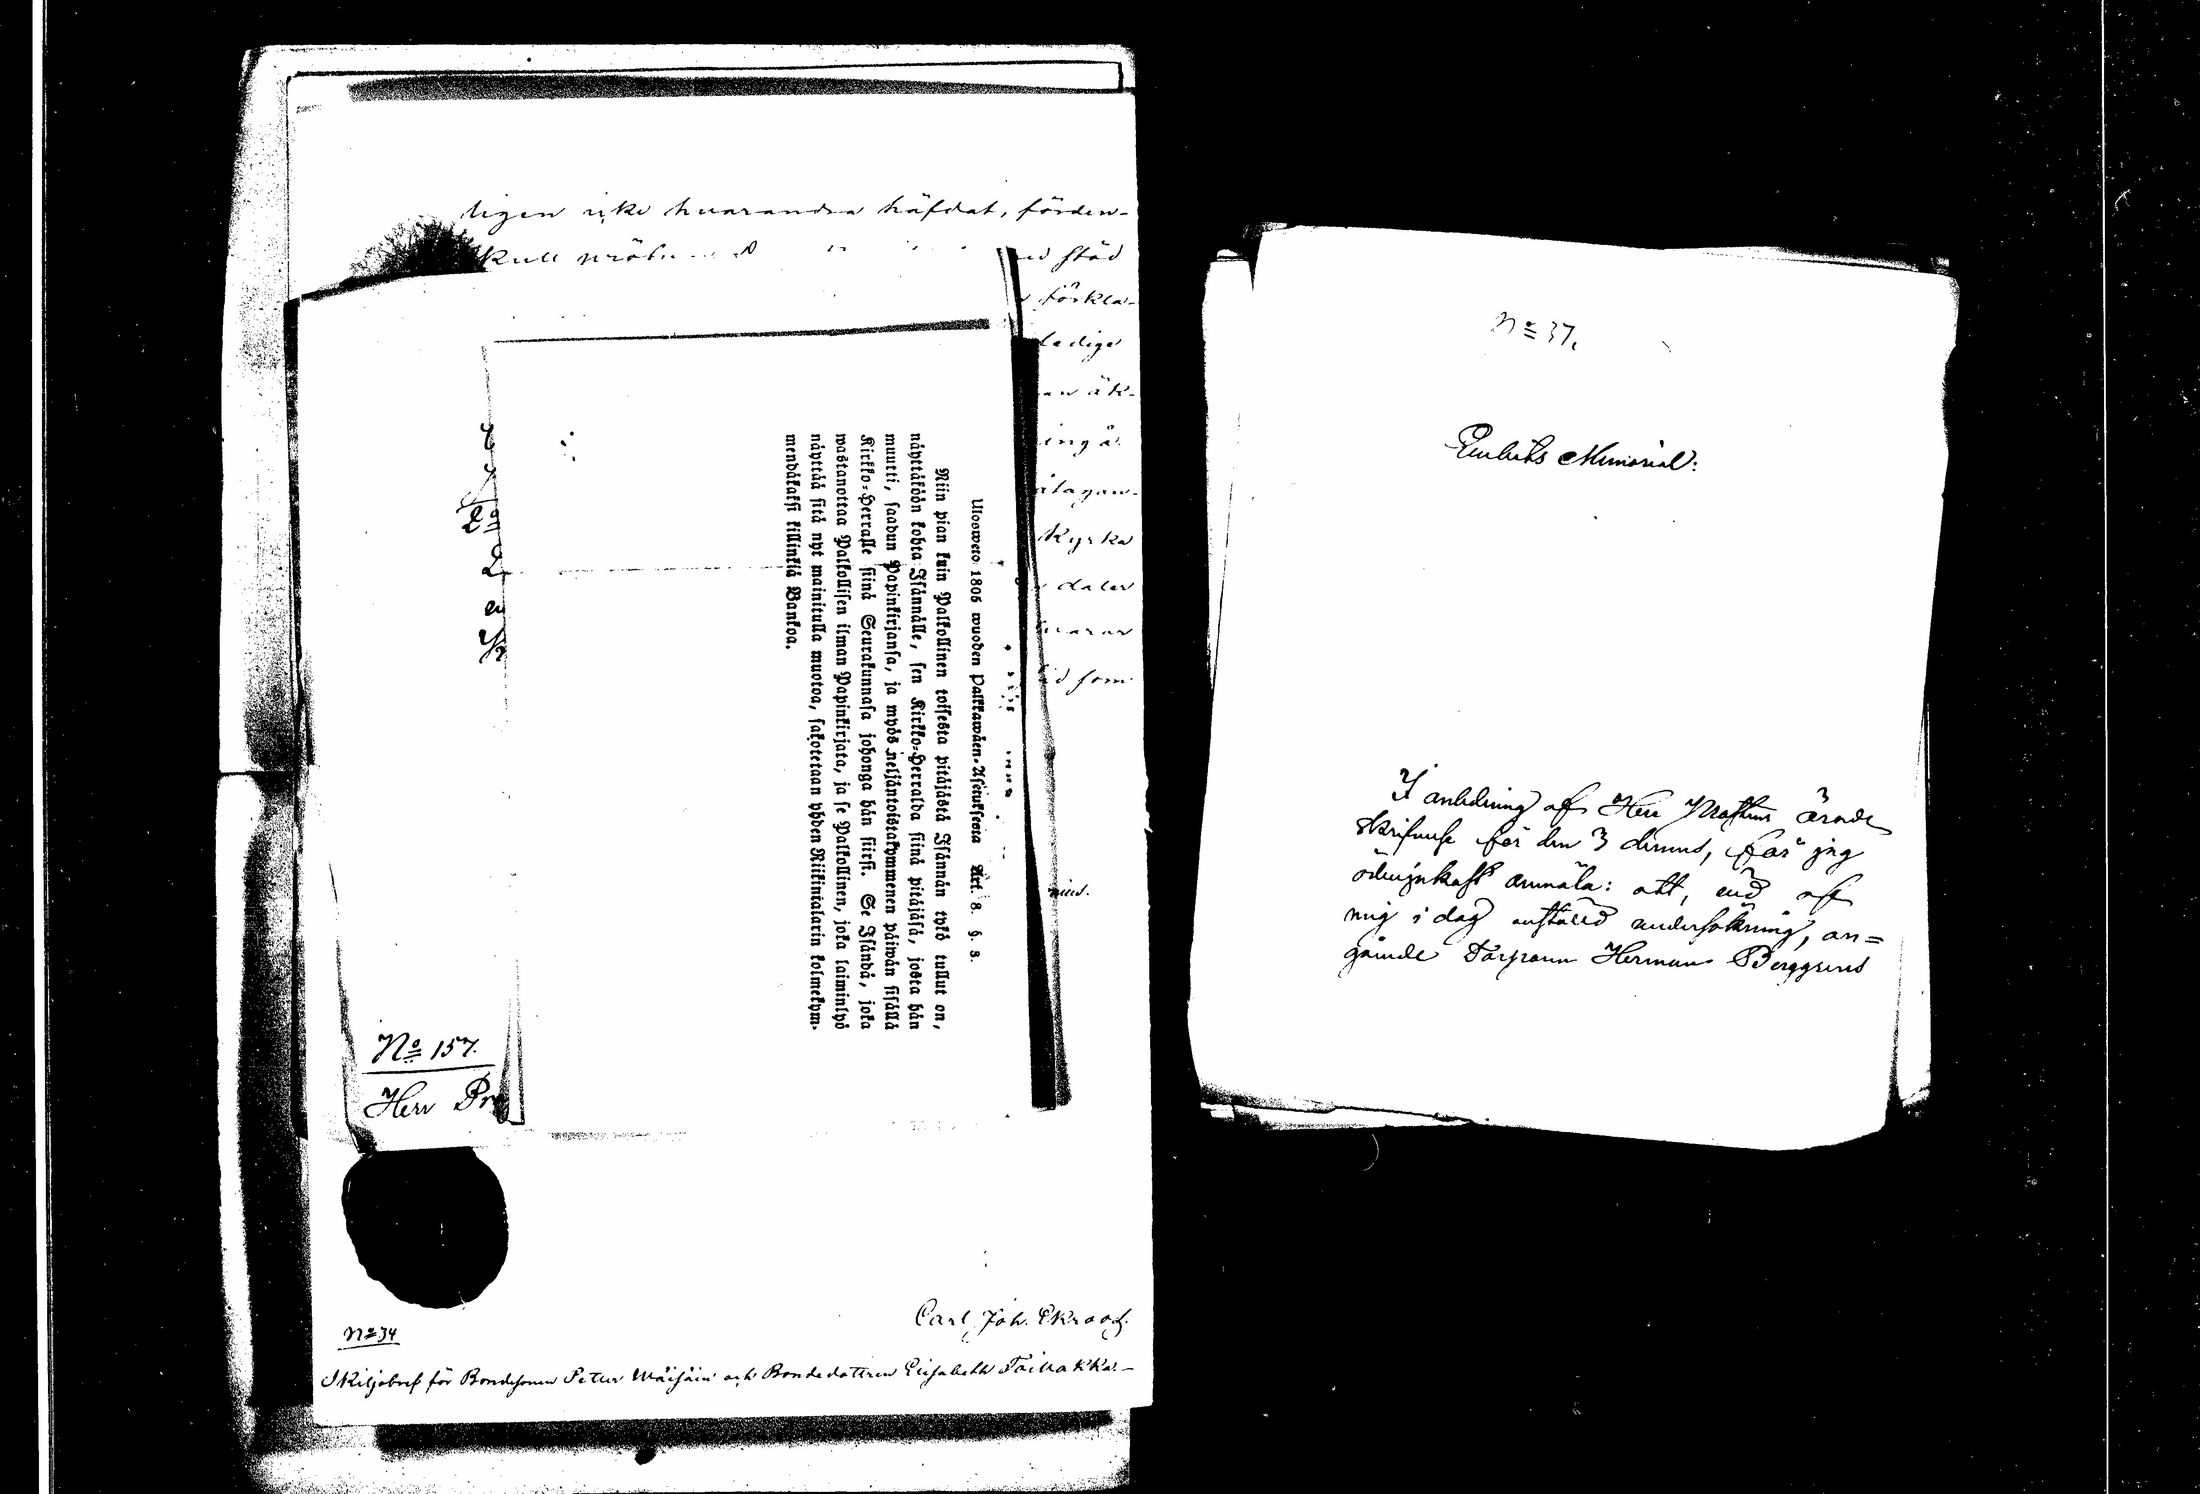 ligen icke hvarandra häfdat, förden-
skull
stöd
förkla-
ledige
äk-
ingå
Kyrko
daler
som
Ulosweto 1805 wuoden Palkkawäen-Asetuksesta Art. 8. §. 8.
Niin pian kuin Palkollinen toisesta pitäjästä Isännän tykö tullut on,
näyttäköön kohta Isännälle, sen Kirkko-Herralda siinä pitäjäsä, josta hän
muutti, saadun Papinkirjansa, ja myös neljäntoistakymmenen päiwän sisällä
Kirkko-Herralle siinä Seurakunnasa johonga hän siirsi. Se Isändä, joka
wastanottaa Palkollisen ilman Papinkirjata, ja se Palkollinen, joka laiminlyö
näyttää sitä nyt mainitulla muotoa, sakotetaan yhden Riikintalarin kolmekym-
mendäkaksi killinkiä Bankoa.
No 157.
Herr Pr
Carl Joh. Ekroos.
No 34
Skiljobref för Bondesonen Petter Wäisäin och Bondedottren Elisabeth Taikakka.
No 37.
Embets Memorial:
I anledning af Herr Prostens ärade
skrifvelse för den 3 dennes, får jag
ödmjukast anmäla: att, vid af
mig i dag anställd undersökning, an=
gående Torparen Herman Berggrens